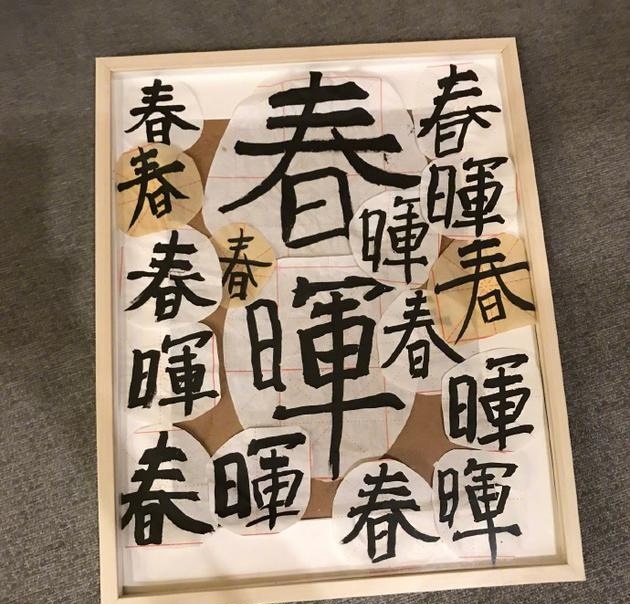 春
春
春
春
暉
暉
春
春
春
暉
春
暉
暉
春
暉
春
暉